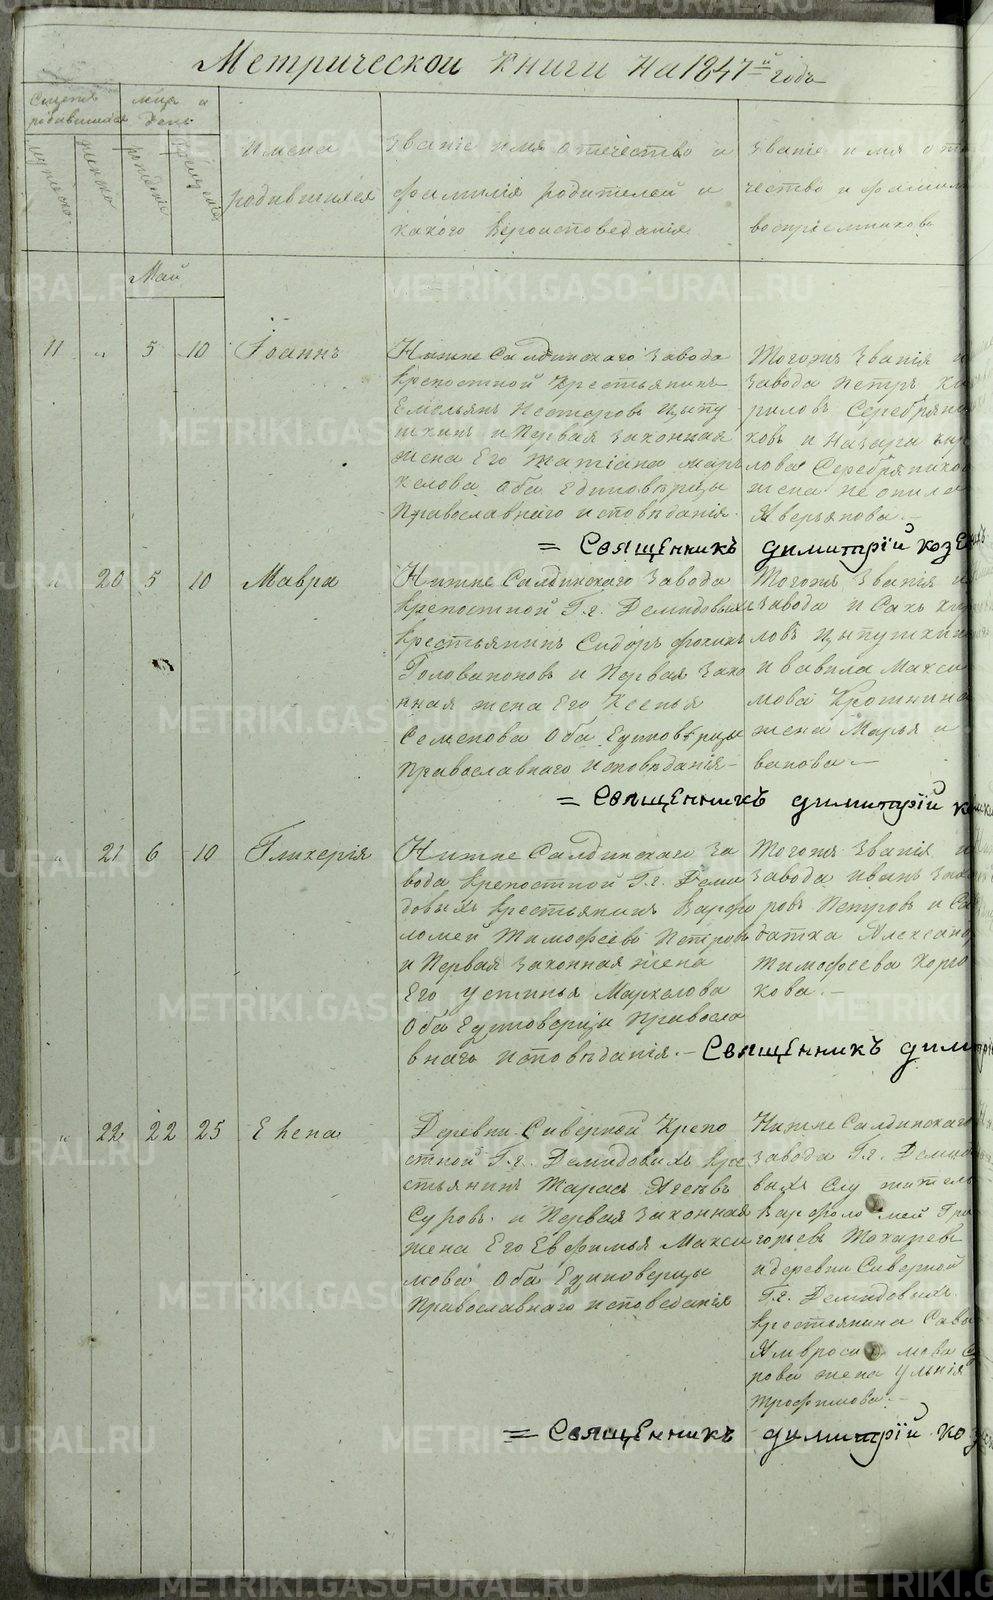 Метрической книги на 1847й года
Счетъ родившихся
мужеска
женска
мцъ и день
рожденія
крещенія
имена родившихся
Званіе имя отечество и
фамилія родителей и
какого вероисповеданія
Званіе имя оте
чество и фамил
воспріемниковъ
Май
11 " 5 10 Іоаннъ
Нижне Салдинскаго завода
крепостной крестьянинъ
Емельянъ Несторовъ Цыпу
шкинъ и Первая законная
жена Его Татіана Мар
келова Оба Единовѣрцы
Православнаго исповѣданія.
Тогожъ Званія и
завода Петръ Ки
риловъ Серебряни
ковъ и Назара Кир
лова Серебряников
жена Неонила
Аверьянова.—
= Священникъ димитрїй коз
" 20 5 10 Мавра
Нижне Салдинскаго завода
крепостной Г.г. Демидовыхъ
крестьянинъ Сидоръ Фокинъ
Головановъ и Первая Зако
нная жена Его Ксенья
Семенова Оба Единовѣрцы
Православнаго исповѣданія—
Тогожъ Званія и
завода Исакъ Ки
ловъ Цыпушкин
и Вавила Макси
мова Кротинина
жена Марья и
ванова.—
= Священникъ димитрїй к
" 21 6 10 Гликерія
Нижне Салдинскаго за
вода крепостной Г.г. Деми
довыхъ крестьянинъ Варфо
ломей Тимофеевъ Петровъ
и Первая законная жена
Его Устинья Маркелова
Оба Единоверцы Правосла
внаго исповѣданія.—
Тогожъ Званія и
завода Иванъ Заха
ровъ Петровъ и Со
датка Александ
Тимофеева
кова.—
Священникъ дим
" 22 22 25 Елена
Деревни Сиверной Крепо
стной Г.г. Демидовыхъ кре
стьянинъ Тарасъ
Суровъ. и Первая законная
жена Его Евфимья Макси
мова Оба Единоверцы
Православнаго исповеданія
Нижне Салдинскаго
завода Г.г. Демидо
выхъ Служитель
Варфоломей Гри
горьевъ Токаревъ
и деревни Сиверной
Г.г. Демидовыхъ
крестьянина Сава
Амвросимова Су
рова жена Ульнія
Трофимова.—
= Священникъ димитрїй коз
METRIKI.GASO-URAL.RU